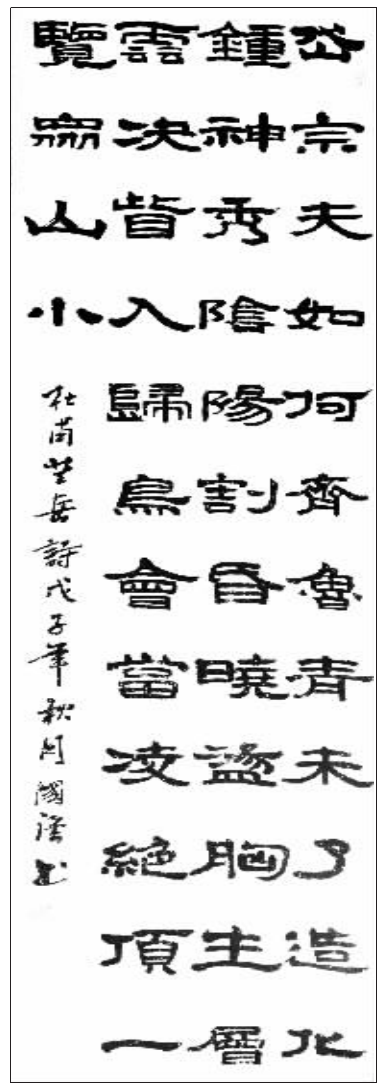 岱宗夫如何齊魯青未了造化
鍾神秀陰陽割昏曉盪胸生層
雲決眥入歸鳥會當凌絕頂一
覽眾山小
杜甫望岳詩戊子年秋月國書